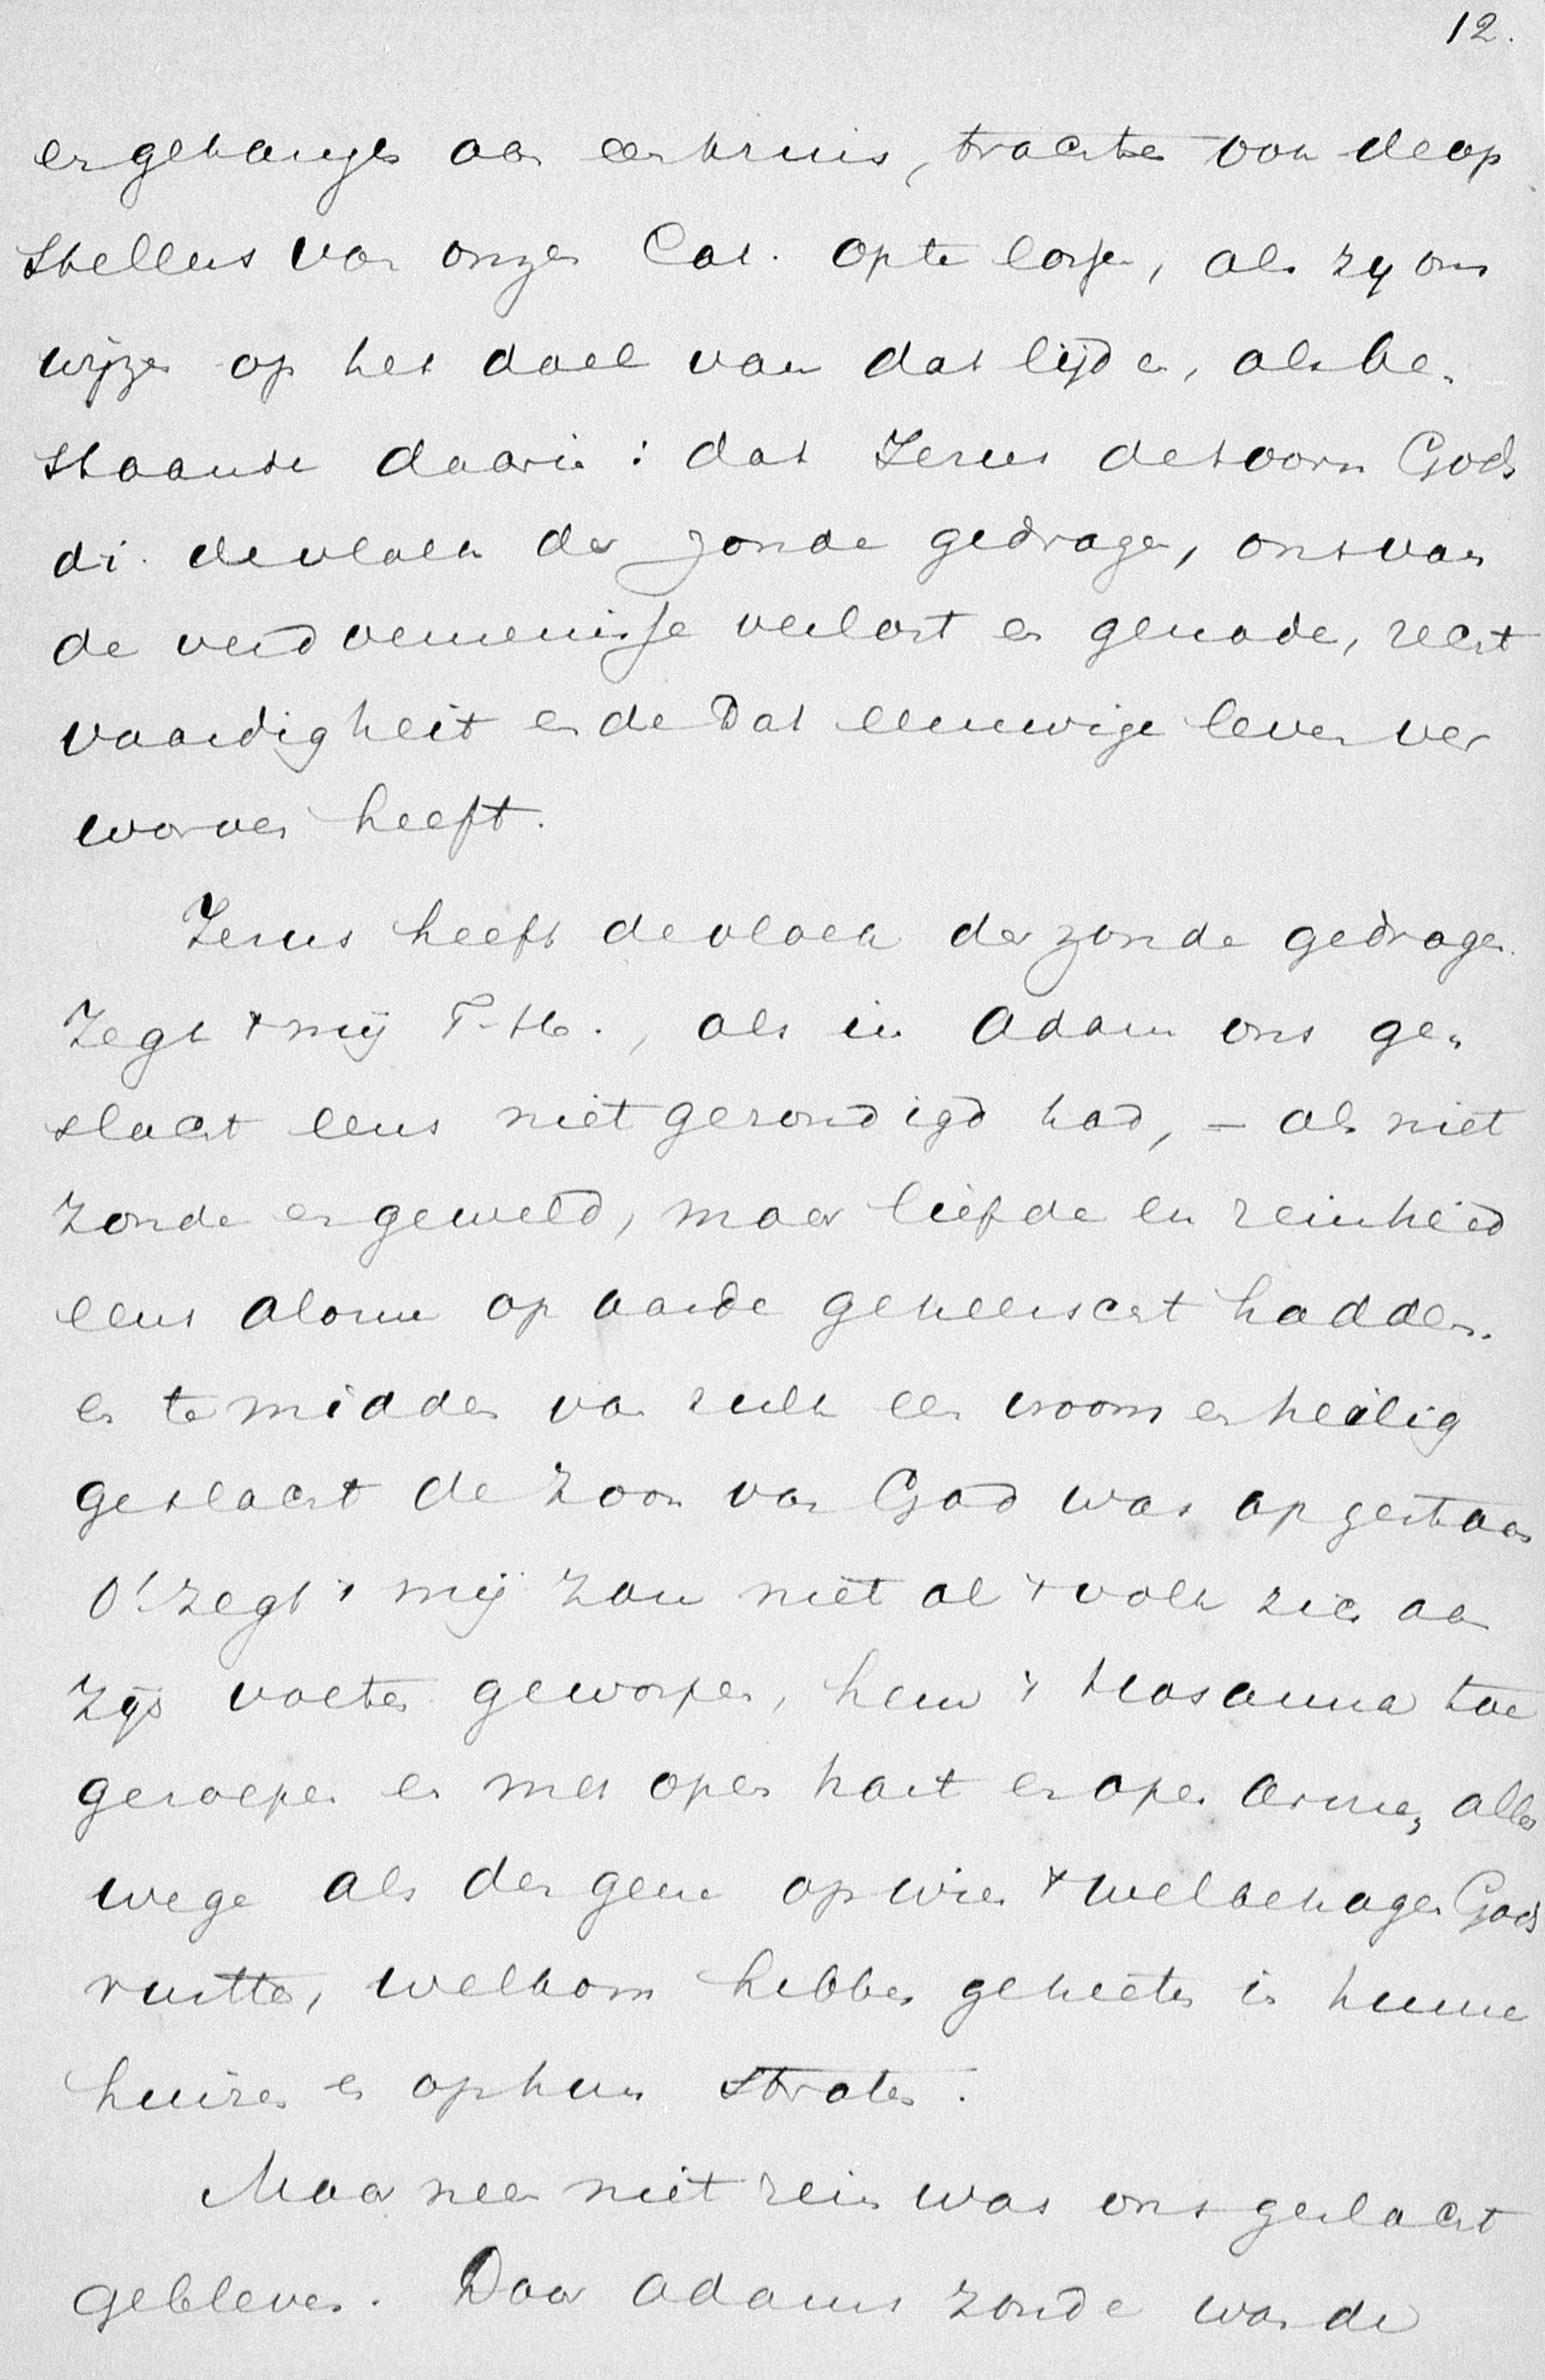 12.
en gehangen aan een kruis, trachten von de op
stellers van onzen Cat. op te lossen, als zij ons
wijzen op het doel van dat lijden, als be„
staande daarin: dat Jezus de toorn Gods
d. i. de vloek der zonde gedragen, ons van
de verdoemenisse verlost en genade, recht
vaardigheit ende dat eeuwige leven ver
worven heeft.
Jezus heeft de vloek der zonde gedragen.
Zegt 't mij T. H., als in Adam ons ge„
slacht eens niet gezondigd had, – als niet
zonde en geweld, maar liefde en reinheid
eens alom op aarde geheerscht hadden.
en te midden van zulk een vroom en heilig
geslacht de Zoon van God was opgestaan
O! zegt 't mij zou niet al 't volk zich aan
zijn voeten geworpen, hem 't Hosanna toe
geroepen en met open hart en open armen, aller
wege als dengene op wien 't welbehagen Gods
rustte, welkom hebben geheeten in hunne
huizen en op hun straten.
Maar neen niet rein was ons geslacht
gebleven. Door Adams zonde was de